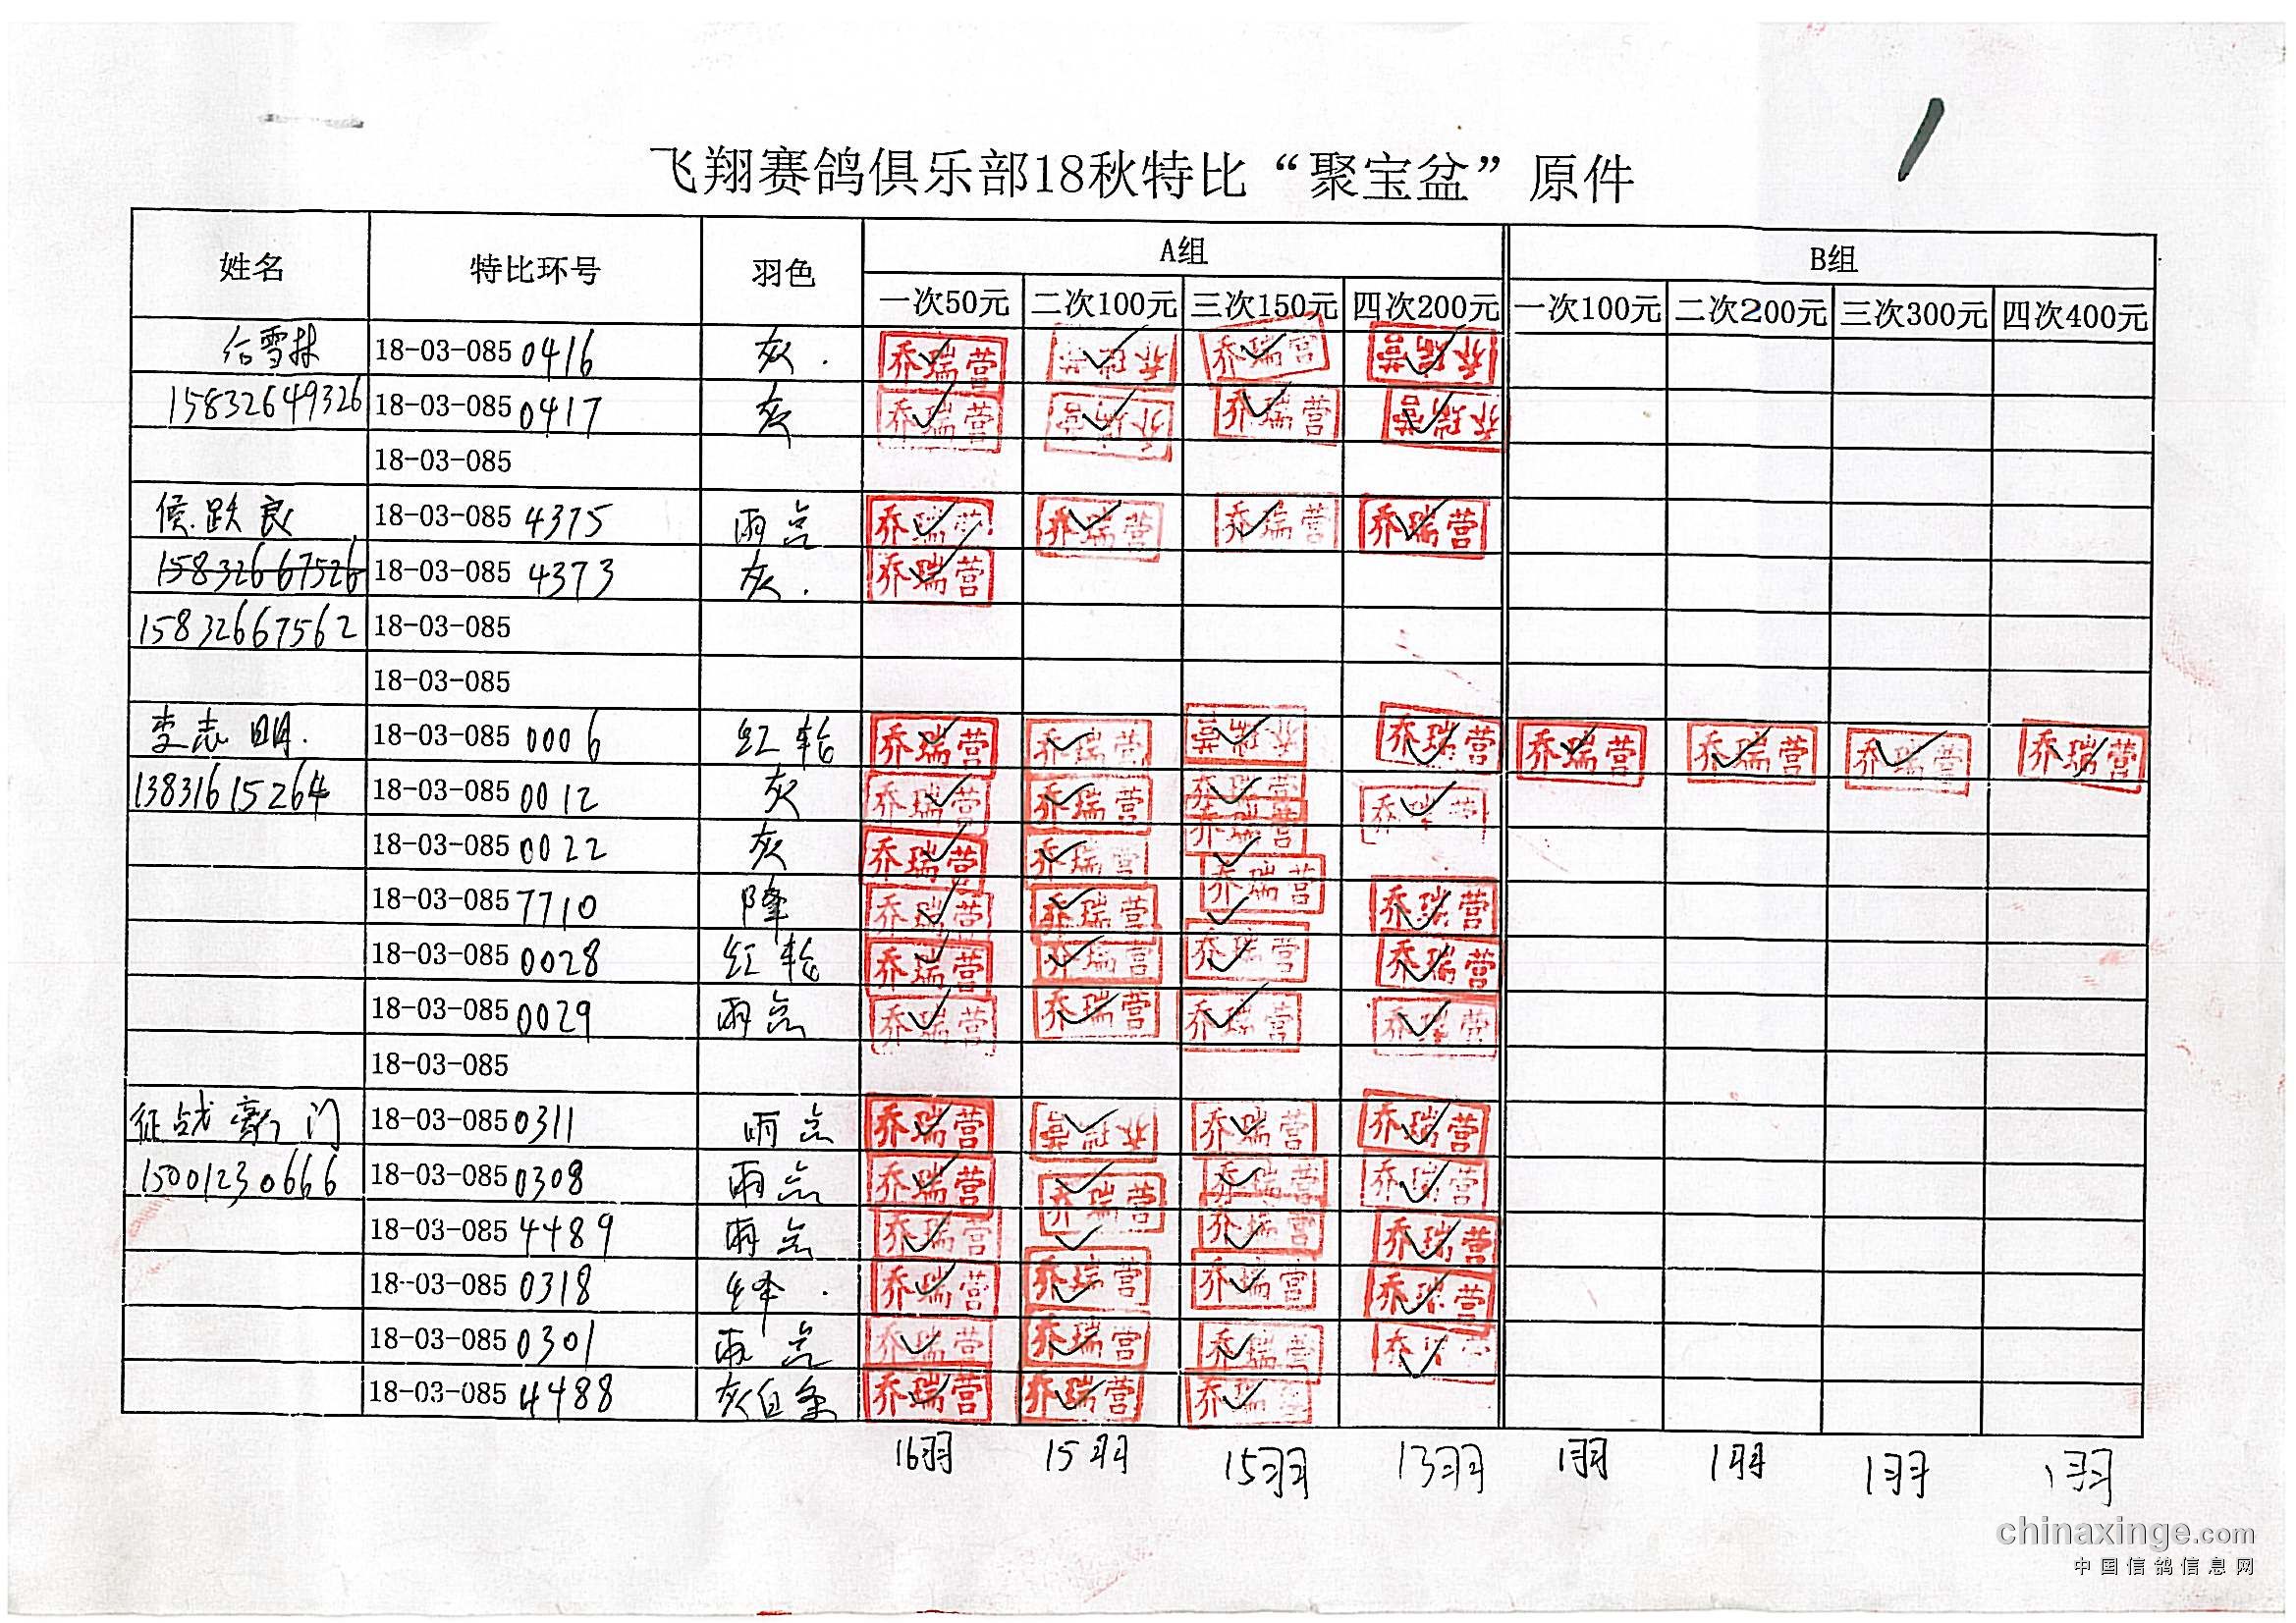 飞翔赛鸽俱乐部18秋特比“聚宝盆”原件
姓名 特比环号 羽色 A组 B组
一次50元 二次100元 三次150元 四次200元 一次100元 二次200元 三次300元 四次400元
雪林 18-03-085 0416 灰. 乔瑞营 乔瑞营 乔瑞营 乔瑞营
15832649326 18-03-085 0417 灰 乔瑞营 乔瑞营 乔瑞营 乔瑞营
18-03-085
侯跃良 18-03-085 4375 雨点 乔瑞营 乔瑞营 乔瑞营 乔瑞营
15832667526 18-03-085 4373 灰. 乔瑞营
15832667562 18-03-085
18-03-085
李志明. 18-03-085 0006 红轮 乔瑞营 乔瑞营 乔瑞营 乔瑞营 乔瑞营 乔瑞营 乔瑞营 乔瑞营
13831615264 18-03-085 0012 灰 乔瑞营 乔瑞营 乔瑞营 乔瑞营
18-03-085 0022 灰 乔瑞营 乔瑞营 乔瑞营
18-03-085 7710 降 乔瑞营 乔瑞营 乔瑞营 乔瑞营
18-03-085 0028 红轮 乔瑞营 乔瑞营 乔瑞营 乔瑞营
18-03-085 0029 雨点 乔瑞营 乔瑞营 乔瑞营 乔瑞营
18-03-085
征战豪门 18-03-085 0311 雨点 乔瑞营 乔瑞营 乔瑞营 乔瑞营
15001230666 18-03-085 0308 雨点 乔瑞营 乔瑞营 乔瑞营 乔瑞营
18-03-085 4489 雨点 乔瑞营 乔瑞营 乔瑞营 乔瑞营
18-03-085 0318 绛. 乔瑞营 乔瑞营 乔瑞营 乔瑞营
18-03-085 0301 雨点 乔瑞营 乔瑞营 乔瑞营 乔瑞营
18-03-085 4488 灰白条 乔瑞营 乔瑞营 乔瑞营
16羽 15羽 15羽 13羽 1羽 1羽 1羽 1羽
chinaxinge.com
中国信鸽信息网